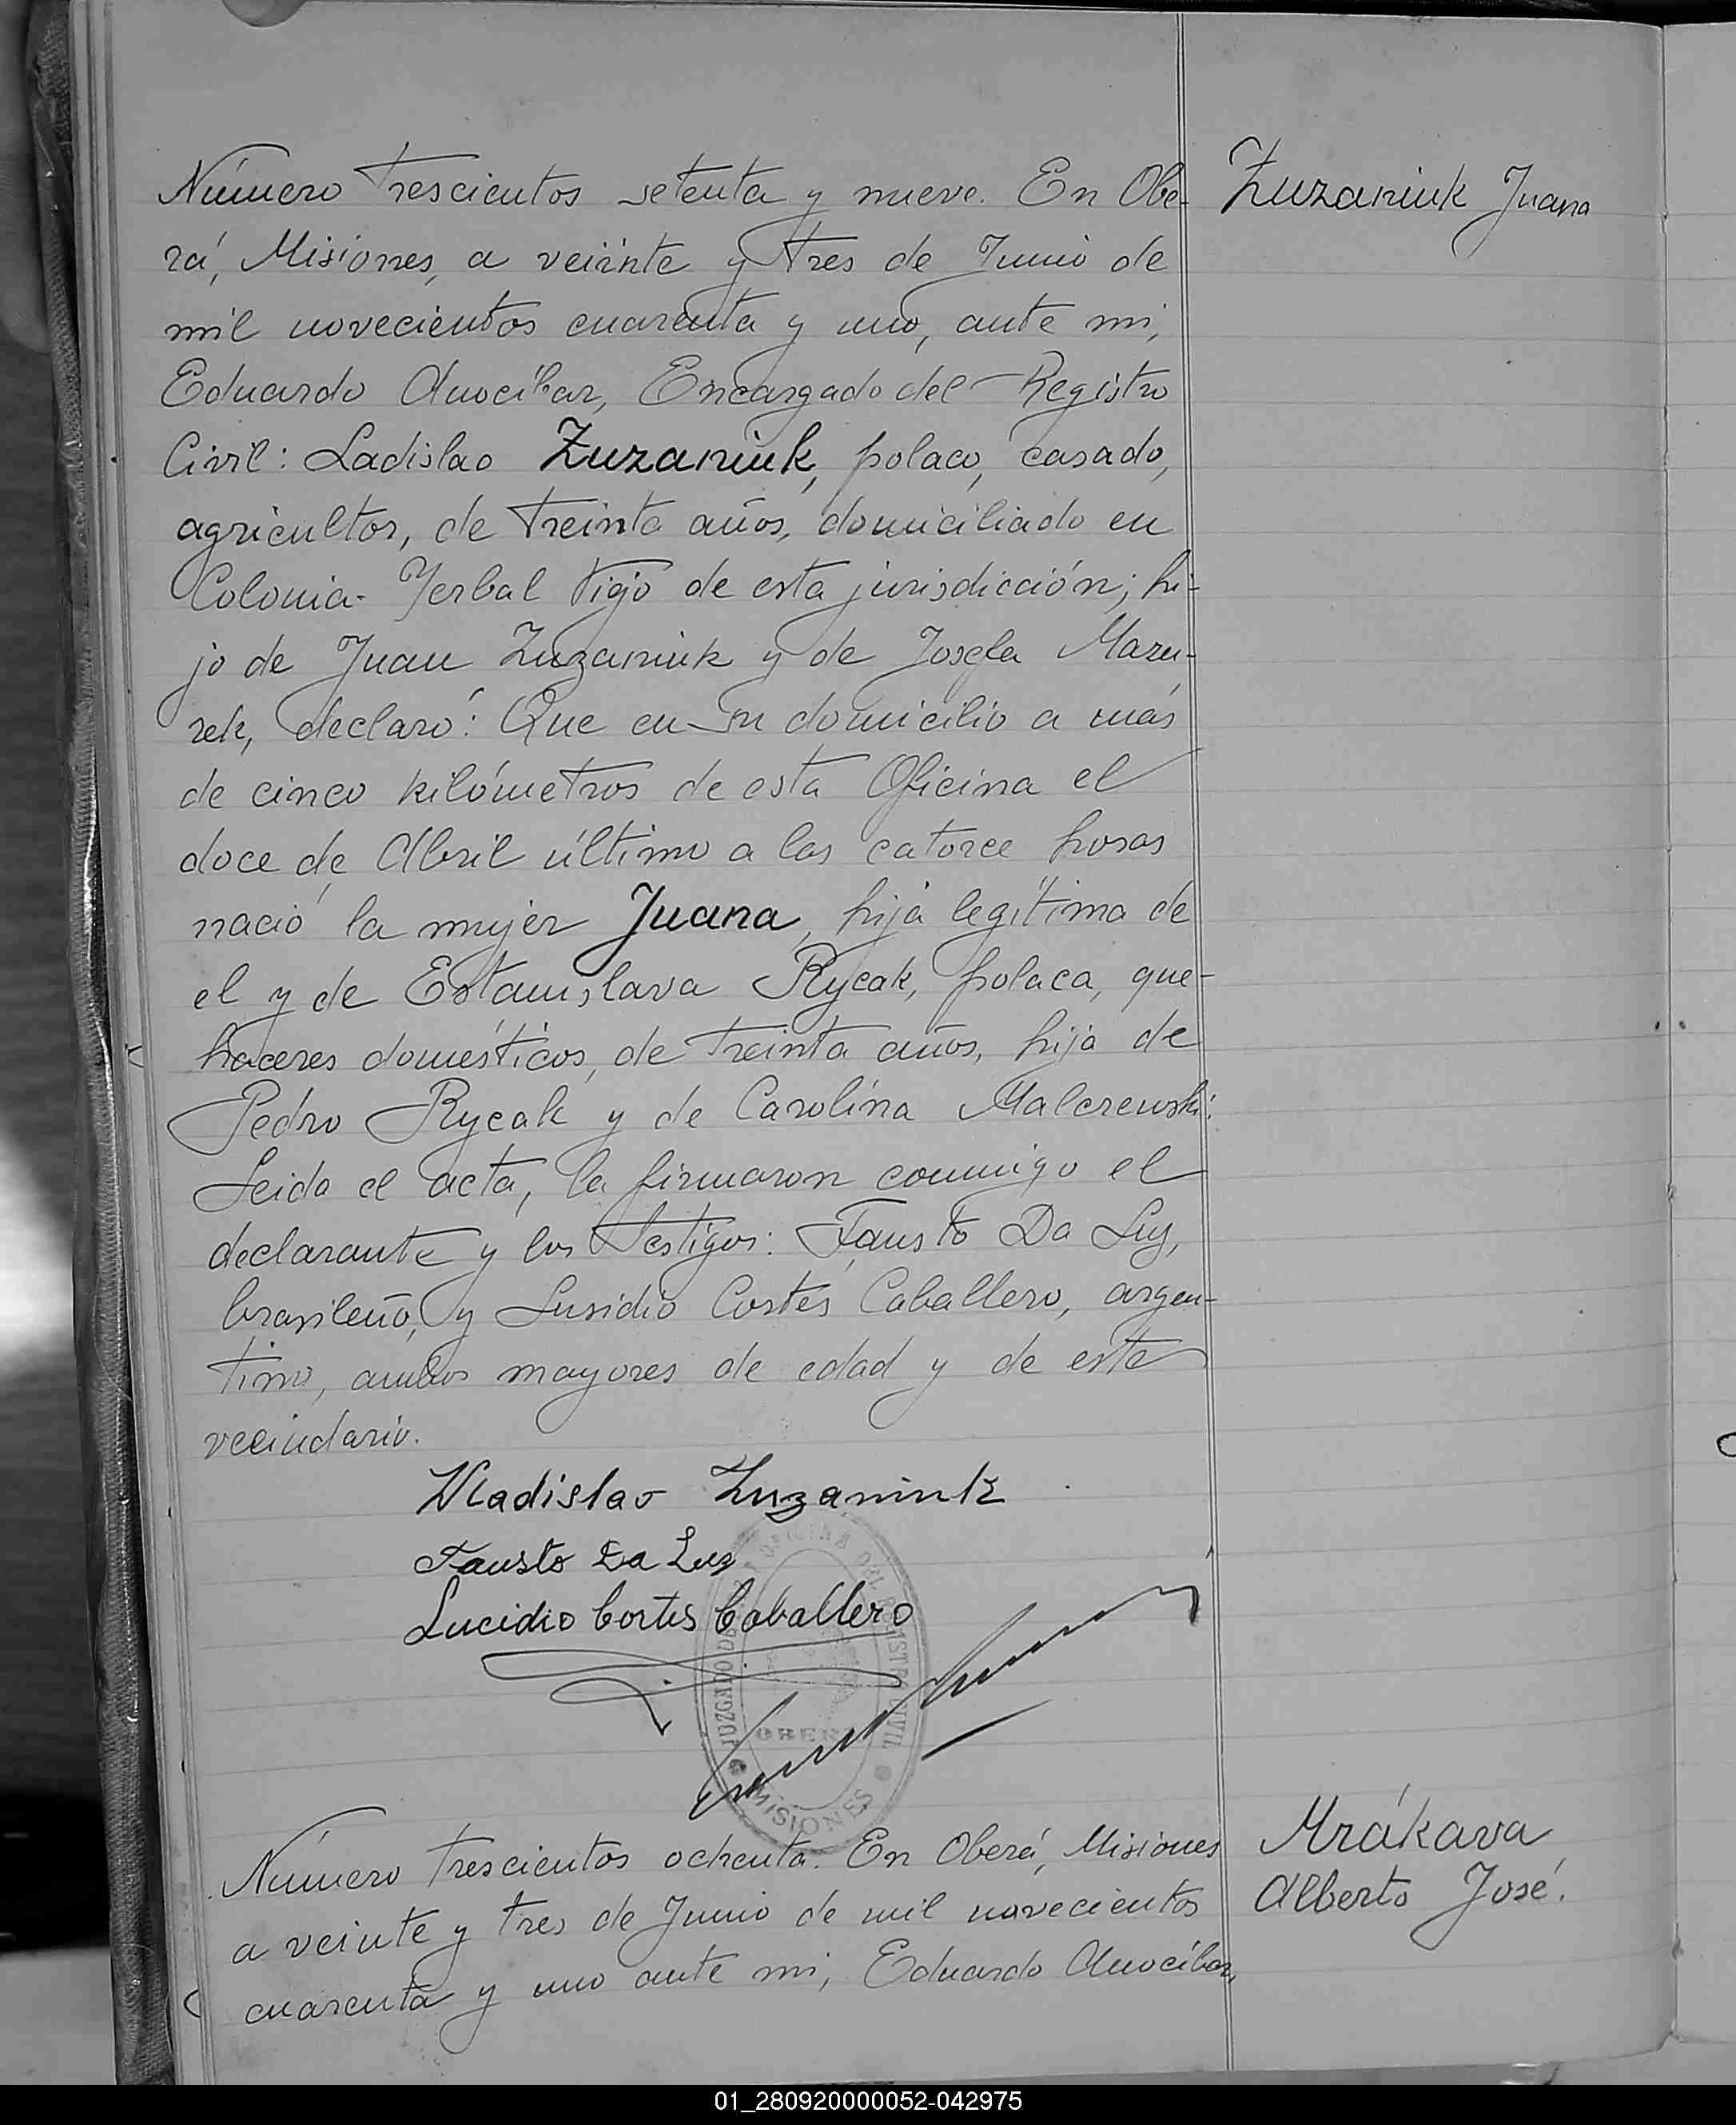 Número trescientos setenta y nueve. En Obe-
rá, Misiones, a veiinte y tres de Junio de
mil novecientos cuarenta y uno, ante mi,
Eduardo Anocíbar, Encargado del Registro
Civil: Ladislao Zuzaniuk, polaco, casado,
agricultor, de treinta años, domiciliado en
Colonia Yerbal Viejo de esta jurisdicción; hi-
jo de Juan Zuzaniuk y de Josefa Mazu-
rek, declaró: Que en su domicilio a más
de cinco kilómetros de esta Oficina el
doce de Abril último a las catorce horas
nació la mujer Juana, hija legítima de
el y de Estanislava Rycak, polaca, que-
haceres domésticos, de treinta años, hija de
Pedro Rycak y de Carolina Malczewski.
Leida el acta, la firmaron conmigo el
declarante y los testigos: Fausto Da Luz,
brasileño, y Lusidio Cortés Caballero, argen-
tino, ambos mayores de edad y de este
vecindario.
Wladislao Zuzaniuk
Fausto Da Luz
Lucidio Cortes Caballero
JUZGADO DE OFICINA DEL REGISTRO CIVIL
OBERÁ
MISIONES
Número trescientos ochenta. En Oberá, Misiones
a veinte y tres de Junio de mil novecientos
cuarenta y uno ante mi, Eduardo Anocíbar,
Zuzaniuk Juana
Mrákava
Alberto José.
01_280920000052-042975